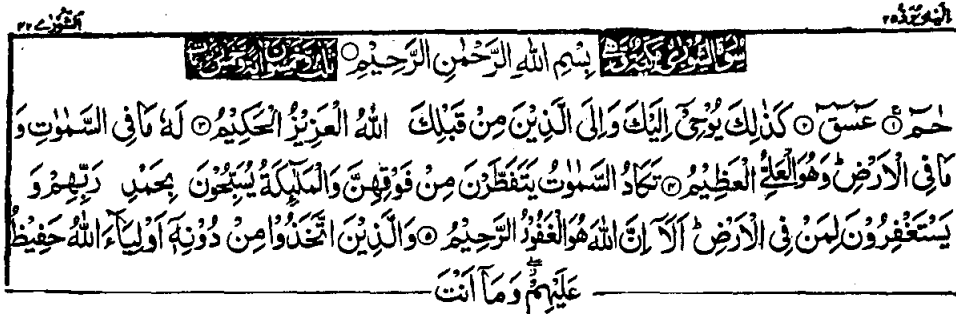 الشورٰى ٤٢ اليه يرد ٢٥
سورة الشورٰى مكية وهى بِسْمِ اللهِ الرَّحْمٰنِ الرَّحِيْمِ ○ ثلث وخمسون اية وخمس ركوعات
حٰمٓ ۚ۝١ عٓسٓقٓ ۝٢ كَذٰلِكَ يُوْحِيْٓ اِلَيْكَ وَاِلَى الَّذِيْنَ مِنْ قَبْلِكَ اللهُ الْعَزِيْزُ الْحَكِيْمُ ۝٣ لَهٗ مَا فِى السَّمٰوٰتِ وَ
مَا فِى الْاَرْضِ ؕ وَهُوَ الْعَلِيُّ الْعَظِيْمُ ۝٤ تَكَادُ السَّمٰوٰتُ يَتَفَطَّرْنَ مِنْ فَوْقِهِنَّ وَالْمَلٰٓئِكَةُ يُسَبِّحُوْنَ بِحَمْدِ رَبِّهِمْ وَ
يَسْتَغْفِرُوْنَ لِمَنْ فِى الْاَرْضِ ؕ اَلَآ اِنَّ اللهَ هُوَ الْغَفُوْرُ الرَّحِيْمُ ۝٥ وَالَّذِيْنَ اتَّخَذُوْا مِنْ دُوْنِهٖٓ اَوْلِيَآءَ اللهُ حَفِيْظٌ
عَلَيْهِمْ ۖ وَمَآ اَنْتَ